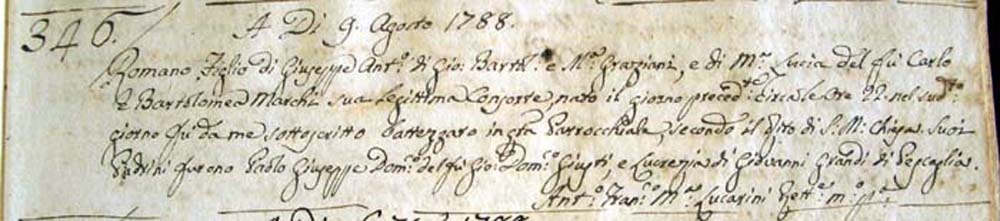 346. A Dì 9. Agosto 1788.
Romano Figlio di Giuseppe Ant.º di Gio: Bartol.º e M.ª Graziani, e di M.ª Lucia del fù Carlo
e Bartolomea Marchi sua legittima Consorte, nato il giorno preced.te circa le Ore 22. nel sud.tto
giorno fù da me sottoscritto battezzato in q̃ta Parrocchiale, secondo il Rito di S. M. Chiesa. Suoi
Padrini furono Paolo Giuseppe Dom.º del fù Gio: Dom.º Giusti, e Lucrezia di Giovanni Grandi di Pescaglia.
Ant.º Fran.º M.ª Lucarini Rett.e m.º p.ª